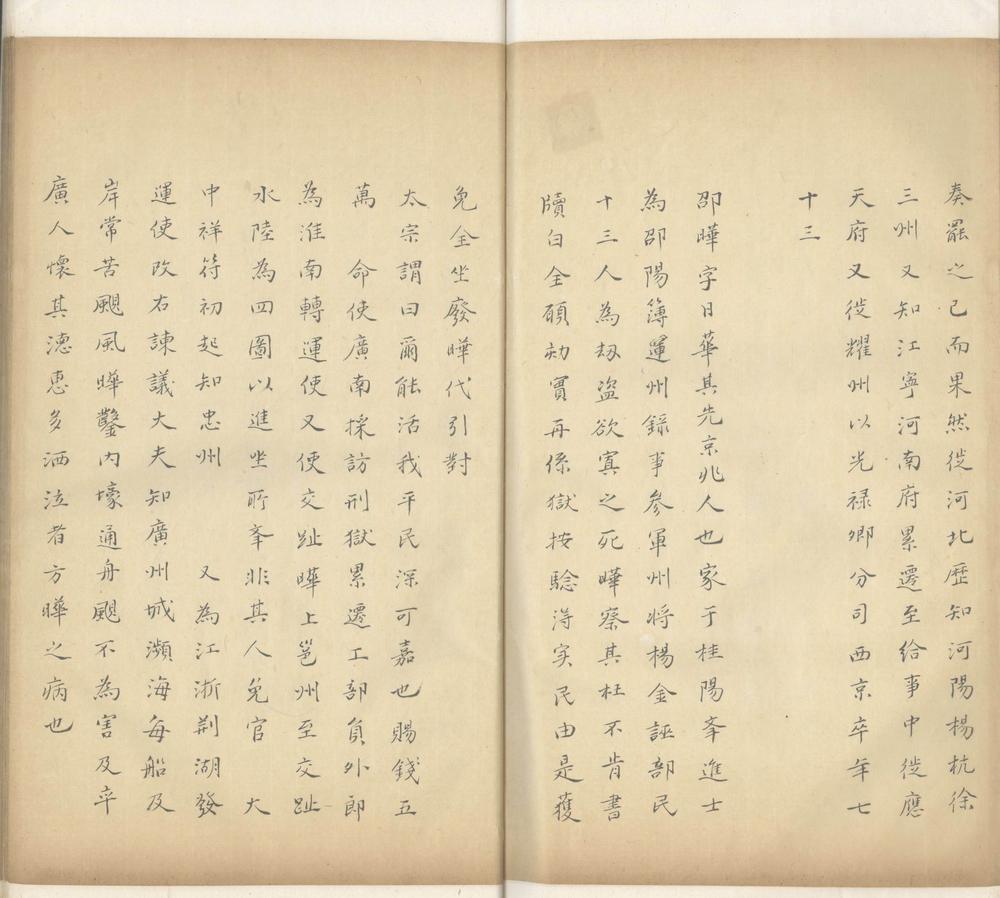 奏罷之已而果然徙河北歷知河陽楊杭徐
三州又知江寧河南府累遷至給事中徙應
天府又徙耀州以光禄卿分司西京卒年七
十三
邵曄字日華其先京兆人也家于桂陽峯進士
為邵陽簿運州錄事參軍州將楊金誣部民
十三人為刼盗欲寘之死曄察其枉不肯書
牘白全碩劾實再係獄按驗淂实民由是獲
免全坐廢曄代引對
太宗謂曰爾能活我平民深可嘉也賜錢五
萬　命使廣南採訪刑獄累遷工部負外郎
為淮南轉運使又使交趾曄上邕州至交趾
水陸為四圖以進坐所峯非其人免官　大
中祥符初起知忠州　又為江浙荆湖發
運使改右諫議大夫知廣州城瀕海每船及
岸常苦颶風曄鑿内壕通舟颶不為害及卒
廣人懷其德惠多洒泣者方曄之病也